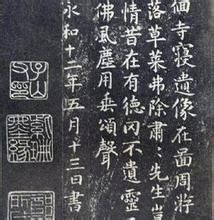 徊寺寢遺像在啚周
落草萊弗除肅〻先生豈
情昔在有德罔不遺靈
佛風塵用垂頌聲
永和十二年五月十三日書